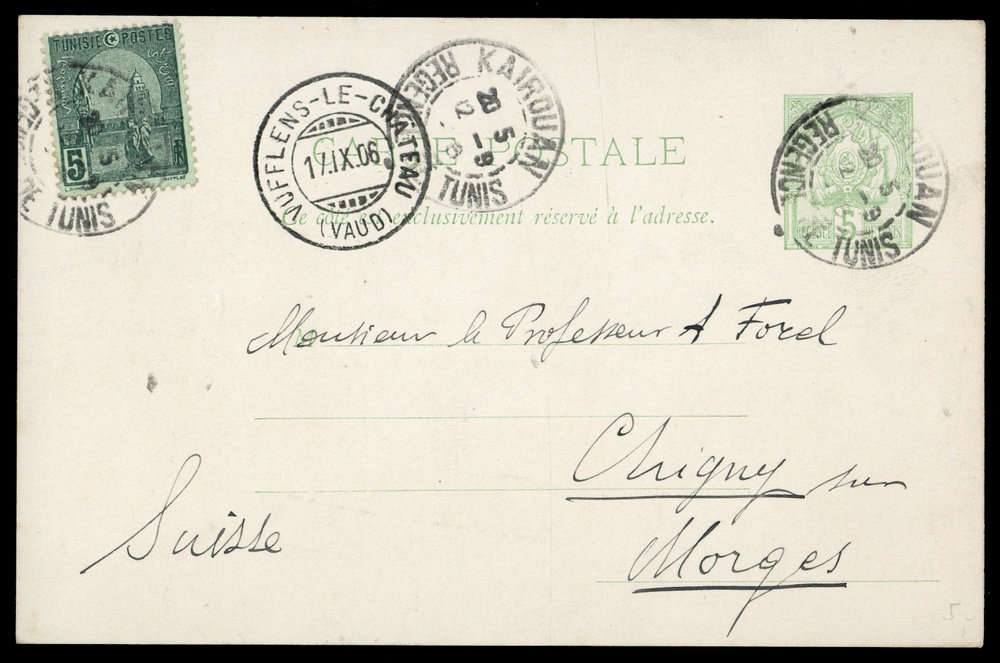 TUNISIE POSTES
5
VUFFLENS-LE-CHATEAU
17.IX.06
(VAUD)
KAIROUAN
20 5
12 -9
REGENCE
TUNIS
CARTE POSTALE
Ce côté est exclusivement réservé à l'adresse.
REGENCE
TUNIS
5
TUNIS
Monsieur le Professeur A Forel
Chigny sur
Morges
Suisse
5-